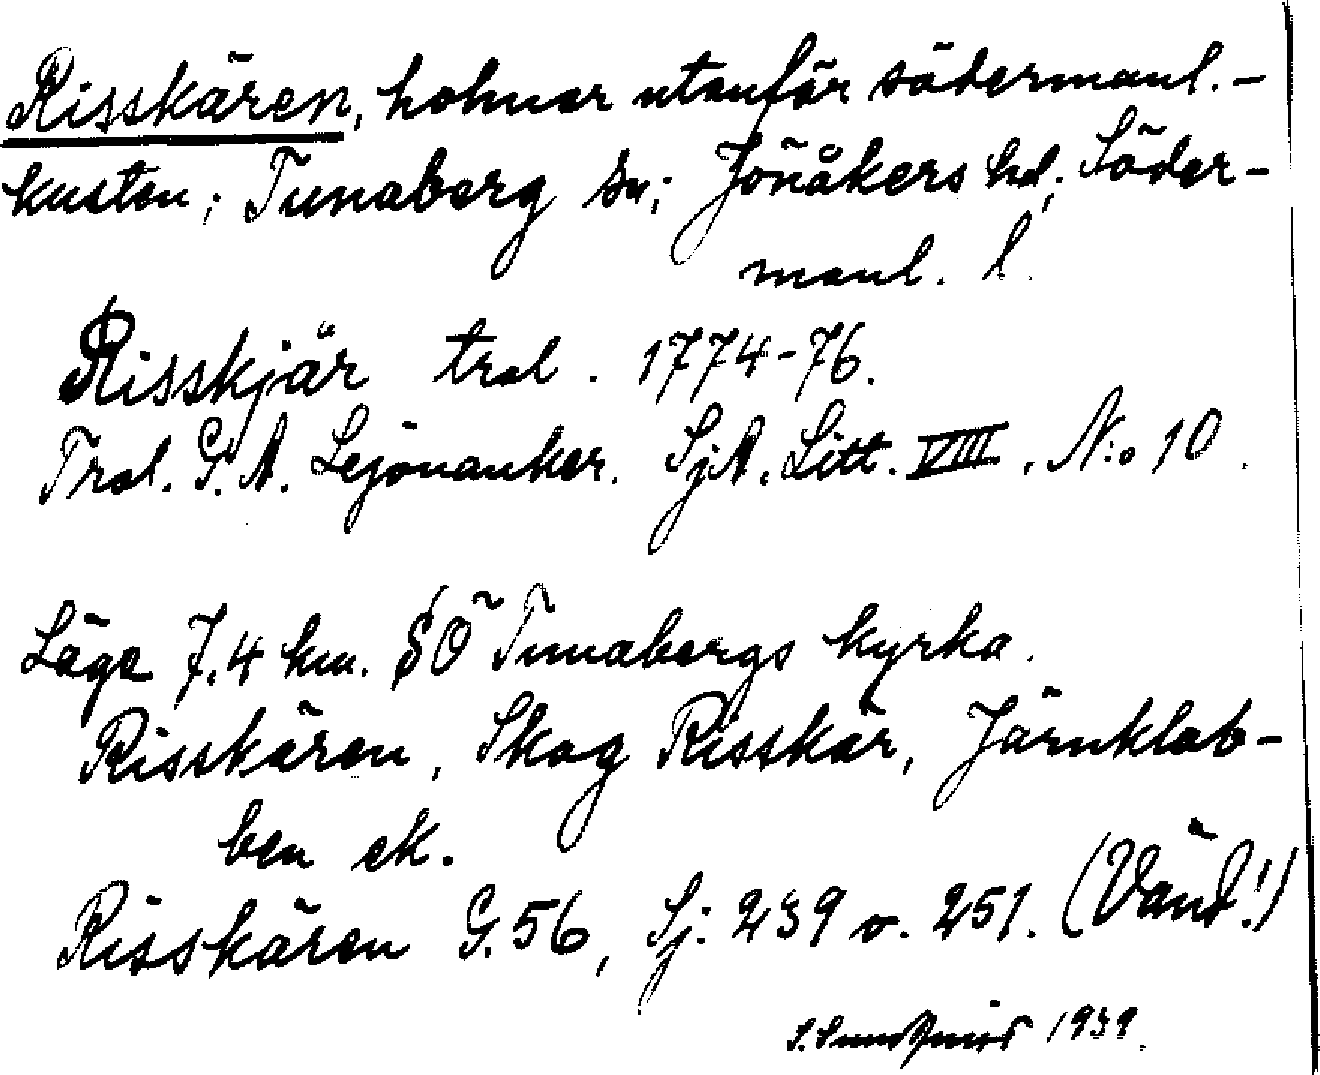 Risskären, holmar utanför södermanl.-
kusten; Tunaberg sn; Jönåkers hd; Söder-
manl. l.
Risskjär trol. 1774-76.
Trol. G. A. Lejonanker. SjA. Litt. VIII. N:o 10.
Läge 7.4 km. SÖ Tunabergs kyrka.
Risskären, Skog Risskär, Järnklob-
ben ek.
Risskären G. 56, Sj. 239 o. 251. (Vänd!)
1939.